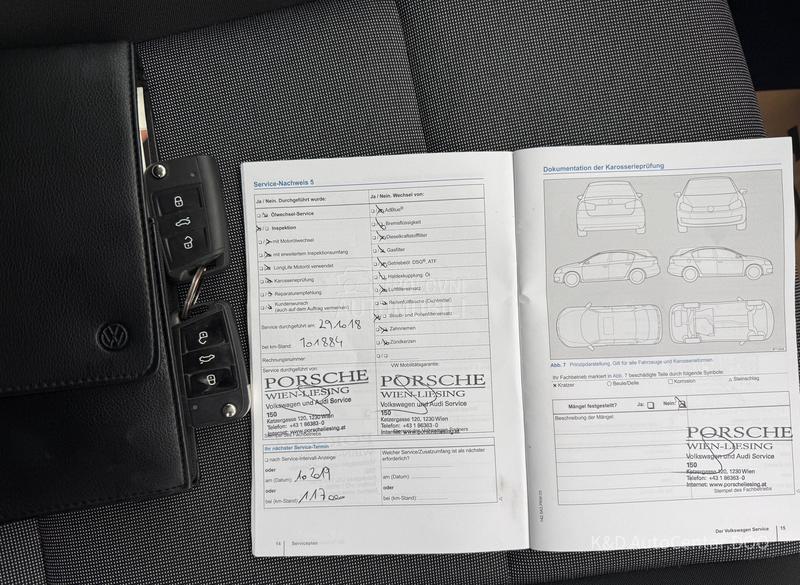 Service-Nachweis 5
Ja / Nein. Durchgeführt wurde:
Ölwechsel-Service
Inspektion
mit Motorölwechsel
mit erweitertem Inspektionsumfang
LongLife Motoröl verwendet
Karosserieprüfung
Reparaturempfehlung
Kundenwunsch
(auch auf dem Auftrag vermerken)
Service durchgeführt am: 29.10.18
bei km-Stand: 101884
Rechnungsnummer:
Service durchgeführt von:
PORSCHE
WIEN-LIESING
Volkswagen und Audi Service
150
Ketzergasse 120, 1230 Wien
Telefon: +43 1 86363-0
Internet: www.porscheliesing.at
Stempel des Fachbetriebs
Ja / Nein. Wechsel von:
AdBlue®
Bremsflüssigkeit
Dieselkraftstofffilter
Gasfilter
Getriebeöl DSG®, ATF
Haldexkupplung Öl
Luftfiltereinsatz
Reifenfüllflasche (Dichtmittel)
Staub- und Pollenfiltereinsatz
Zahnriemen
Zündkerzen
VW Mobilitätsgarantie:
PORSCHE
WIEN-LIESING
Volkswagen und Audi Service
150
Ketzergasse 120, 1230 Wien
Telefon: +43 1 86363-0
Internet: www.porscheliesing.at
Ihr nächster Service-Termin
nach Service-Intervall-Anzeige
oder
am (Datum) 10 2019
oder
bei (km-Stand) 117000
Welcher Service/Zusatzumfang ist als nächster
erforderlich?
am (Datum):
oder
bei (km-Stand):
14 Serviceplan
Dokumentation der Karosserieprüfung
Abb. 7 Prinzipdarstellung. Gilt für alle Fahrzeuge und Karosserieformen.
Ihr Fachbetrieb markiert in Abb. 7 beschädigte Teile durch folgende Symbole:
Kratzer
Beule/Delle
Korrosion
Steinschlag
Mängel festgestellt? Ja: Nein:
Beschreibung der Mängel:
PORSCHE
WIEN-LIESING
Volkswagen und Audi Service
150
Ketzergasse 120, 1230 Wien
Telefon: +43 1 86363-0
Internet: www.porscheliesing.at
Stempel des Fachbetriebs
Der Volkswagen Service 15
K&D AutoCentar DOO